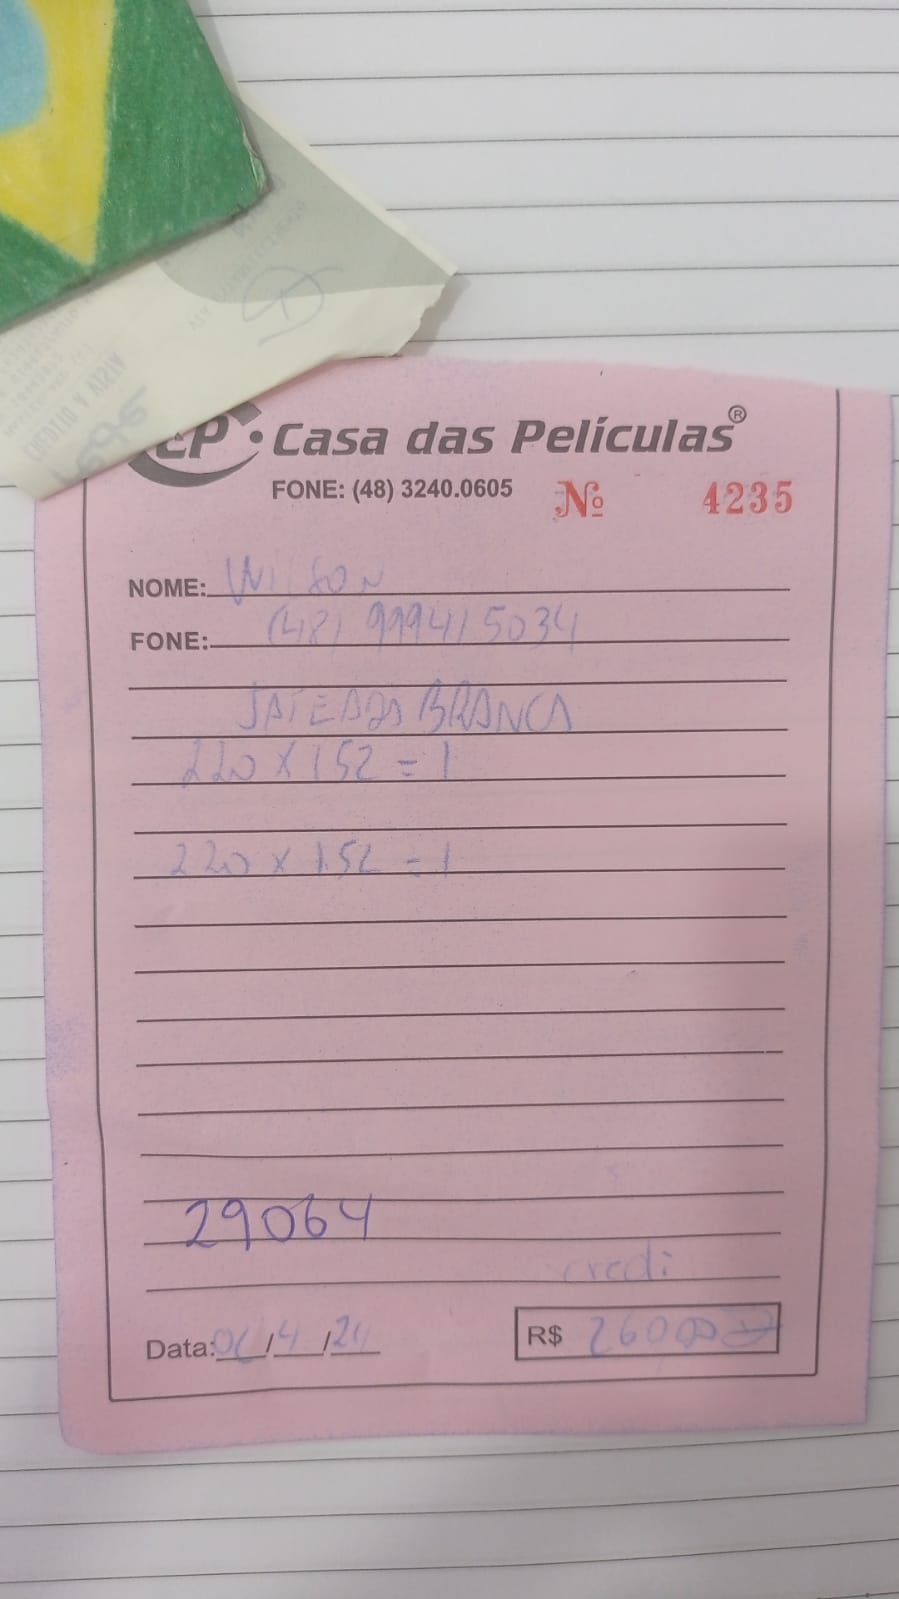 Casa das Películas®
FONE: (48) 3240.0605 Nº 4235
NOME: WILSON
FONE: (48) 999415034
JATEADA BRANCA
220 X 152 = 1
220 X 1.52 = 1
29064
credi
Data: /4/24 R$ 260,00
DEBITO A VISTA